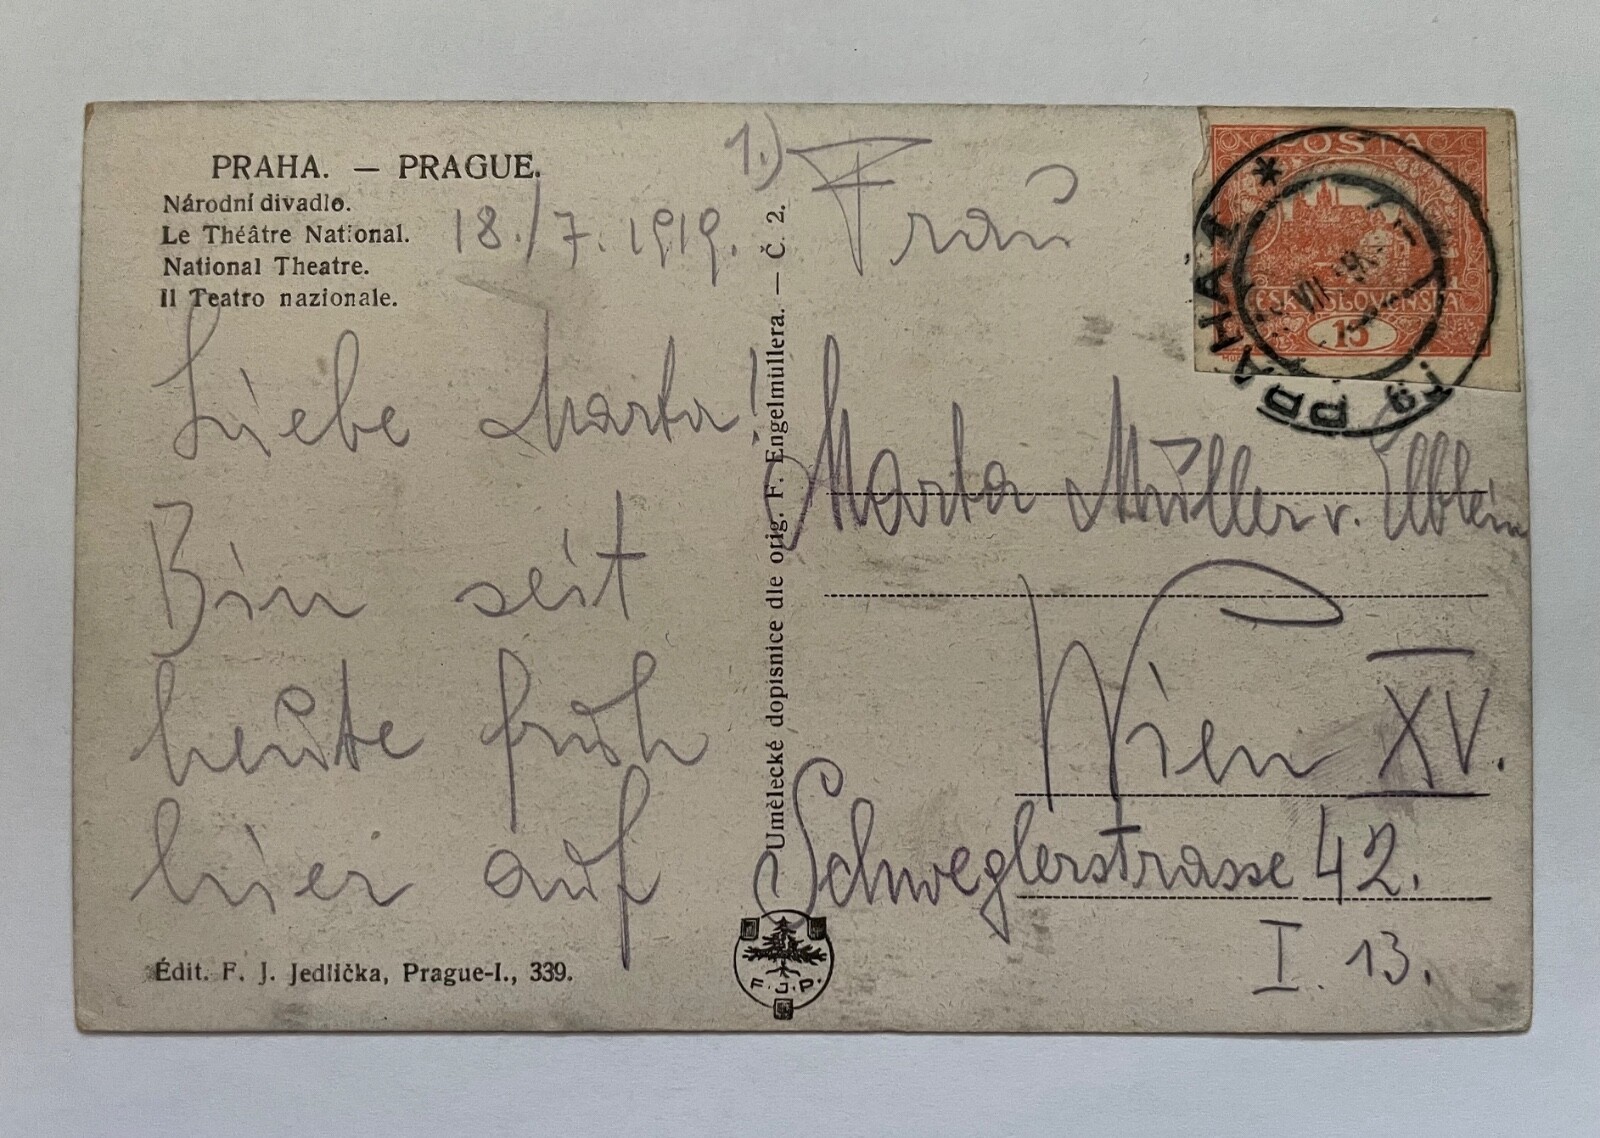 PRAHA. — PRAGUE.
Národní divadlo.
Le Théâtre National.
National Theatre.
Il Teatro nazionale.
18./7. 1919.
Liebe Marta!
Bin seit
heute früh
hier auf
Édit. F. J. Jedlička, Prague-I., 339.
Umělecké dopisnice dle orig. F. Engelmüllera. — Č. 2.
F. J. P.
1.) Frau
Marta Müller v.
Wien XV.
Schweglerstrasse 42.
I. 13.
POŠTA
ČESKOSLOVENSKÁ
15
PRAHA 1
VII